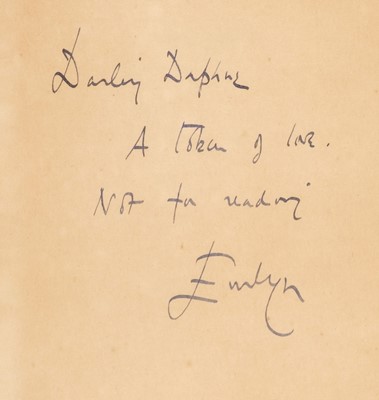 Darling Daphne
A token of love.
Not for reading
Evelyn